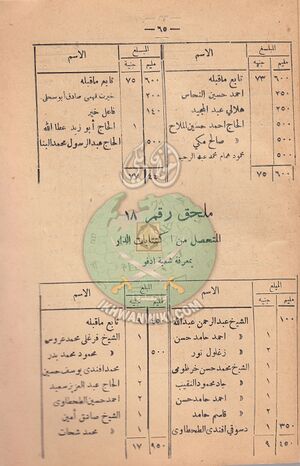 — ٦٥ —
المبلغ الاسم المبلغ الاسم
مليم جنيه مليم جنيه
٦٠٠ ٧٣ تابع ماقبله
٢٥٠ احمد حسين النحاس
٢٥٠ هلالي عبد المجيد
٥٠٠ الحاج احمد حسين الملاح
٥٠٠ » صالح مكي
حمودة همام محمد عبد الرحيم
٦٠٠ ٧٥
٦٠٠ ٧٥ تابع ماقبله
٢٠٠ خيرت فهمي صادق أبو سحلي
١٤٠ فاعل خير
١ الحاج أبو زيد عطا الله
٥٠٠ الحاج عبد الرسول محمد البنا
٧٧
ملحق رقم ١٨
المتحصل من اكتتابات الدار
بمعرفة شعبة ادفو
المبلغ الاسم المبلغ الاسم
مليم جنيه مليم جنيه
١٠٠ الشيخ عبد الرحمن عبد الله
١ » احمد حامد حسن
١ » زغلول نور
١ الشيخ محمد حسن خرطومي
١ » جاد محمود النقيب
١ » احمد حامد حسن
١ » قاسم حامد
٣٥٠ دسوقي افندي الطحطاوي
٤٥٠ ٩
تابع ماقبله
١ الشيخ فرغلي محمد عروس
٥٠٠ » محمود محمد بدر
١ محمد افندي يوسف حسين
١ الحاج عبد العزيز سعيد
١ احمد حسين الطحطاوي
١ الشيخ صادق أمين
١ » محمد شحات
٩٥٠ ١٧
IKHWANWIKI.COM